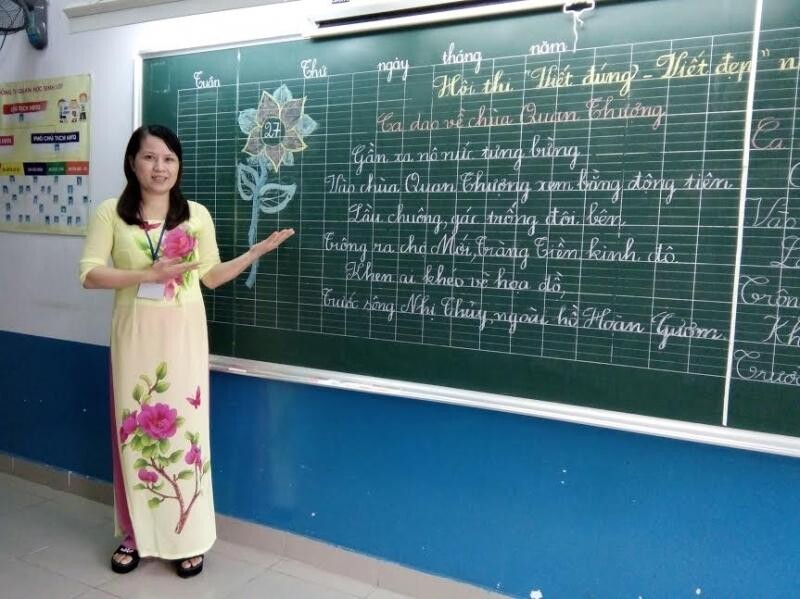 TỰ QUẢN HỌC SINH LỚP
CHỦ TỊCH HĐTQ
PHÓ CHỦ TỊCH HĐTQ
Tuần Thứ ngày tháng năm
Hội thi "Viết đúng - Viết đẹp" n
27
Ca dao về chùa Quan Thượng
Gần xa nô nức tưng bừng
Vào chùa Quan Thượng xem bằng động tiên
Lầu chuông, gác trống đôi bên
Trông ra chợ Mới, Tràng Tiền kinh đô
Khen ai khéo vẽ họa đồ,
Trước sông Nhị Thủy, ngoài hồ Hoàn Gươm.
Ca
Trôn
Kh
Trướ